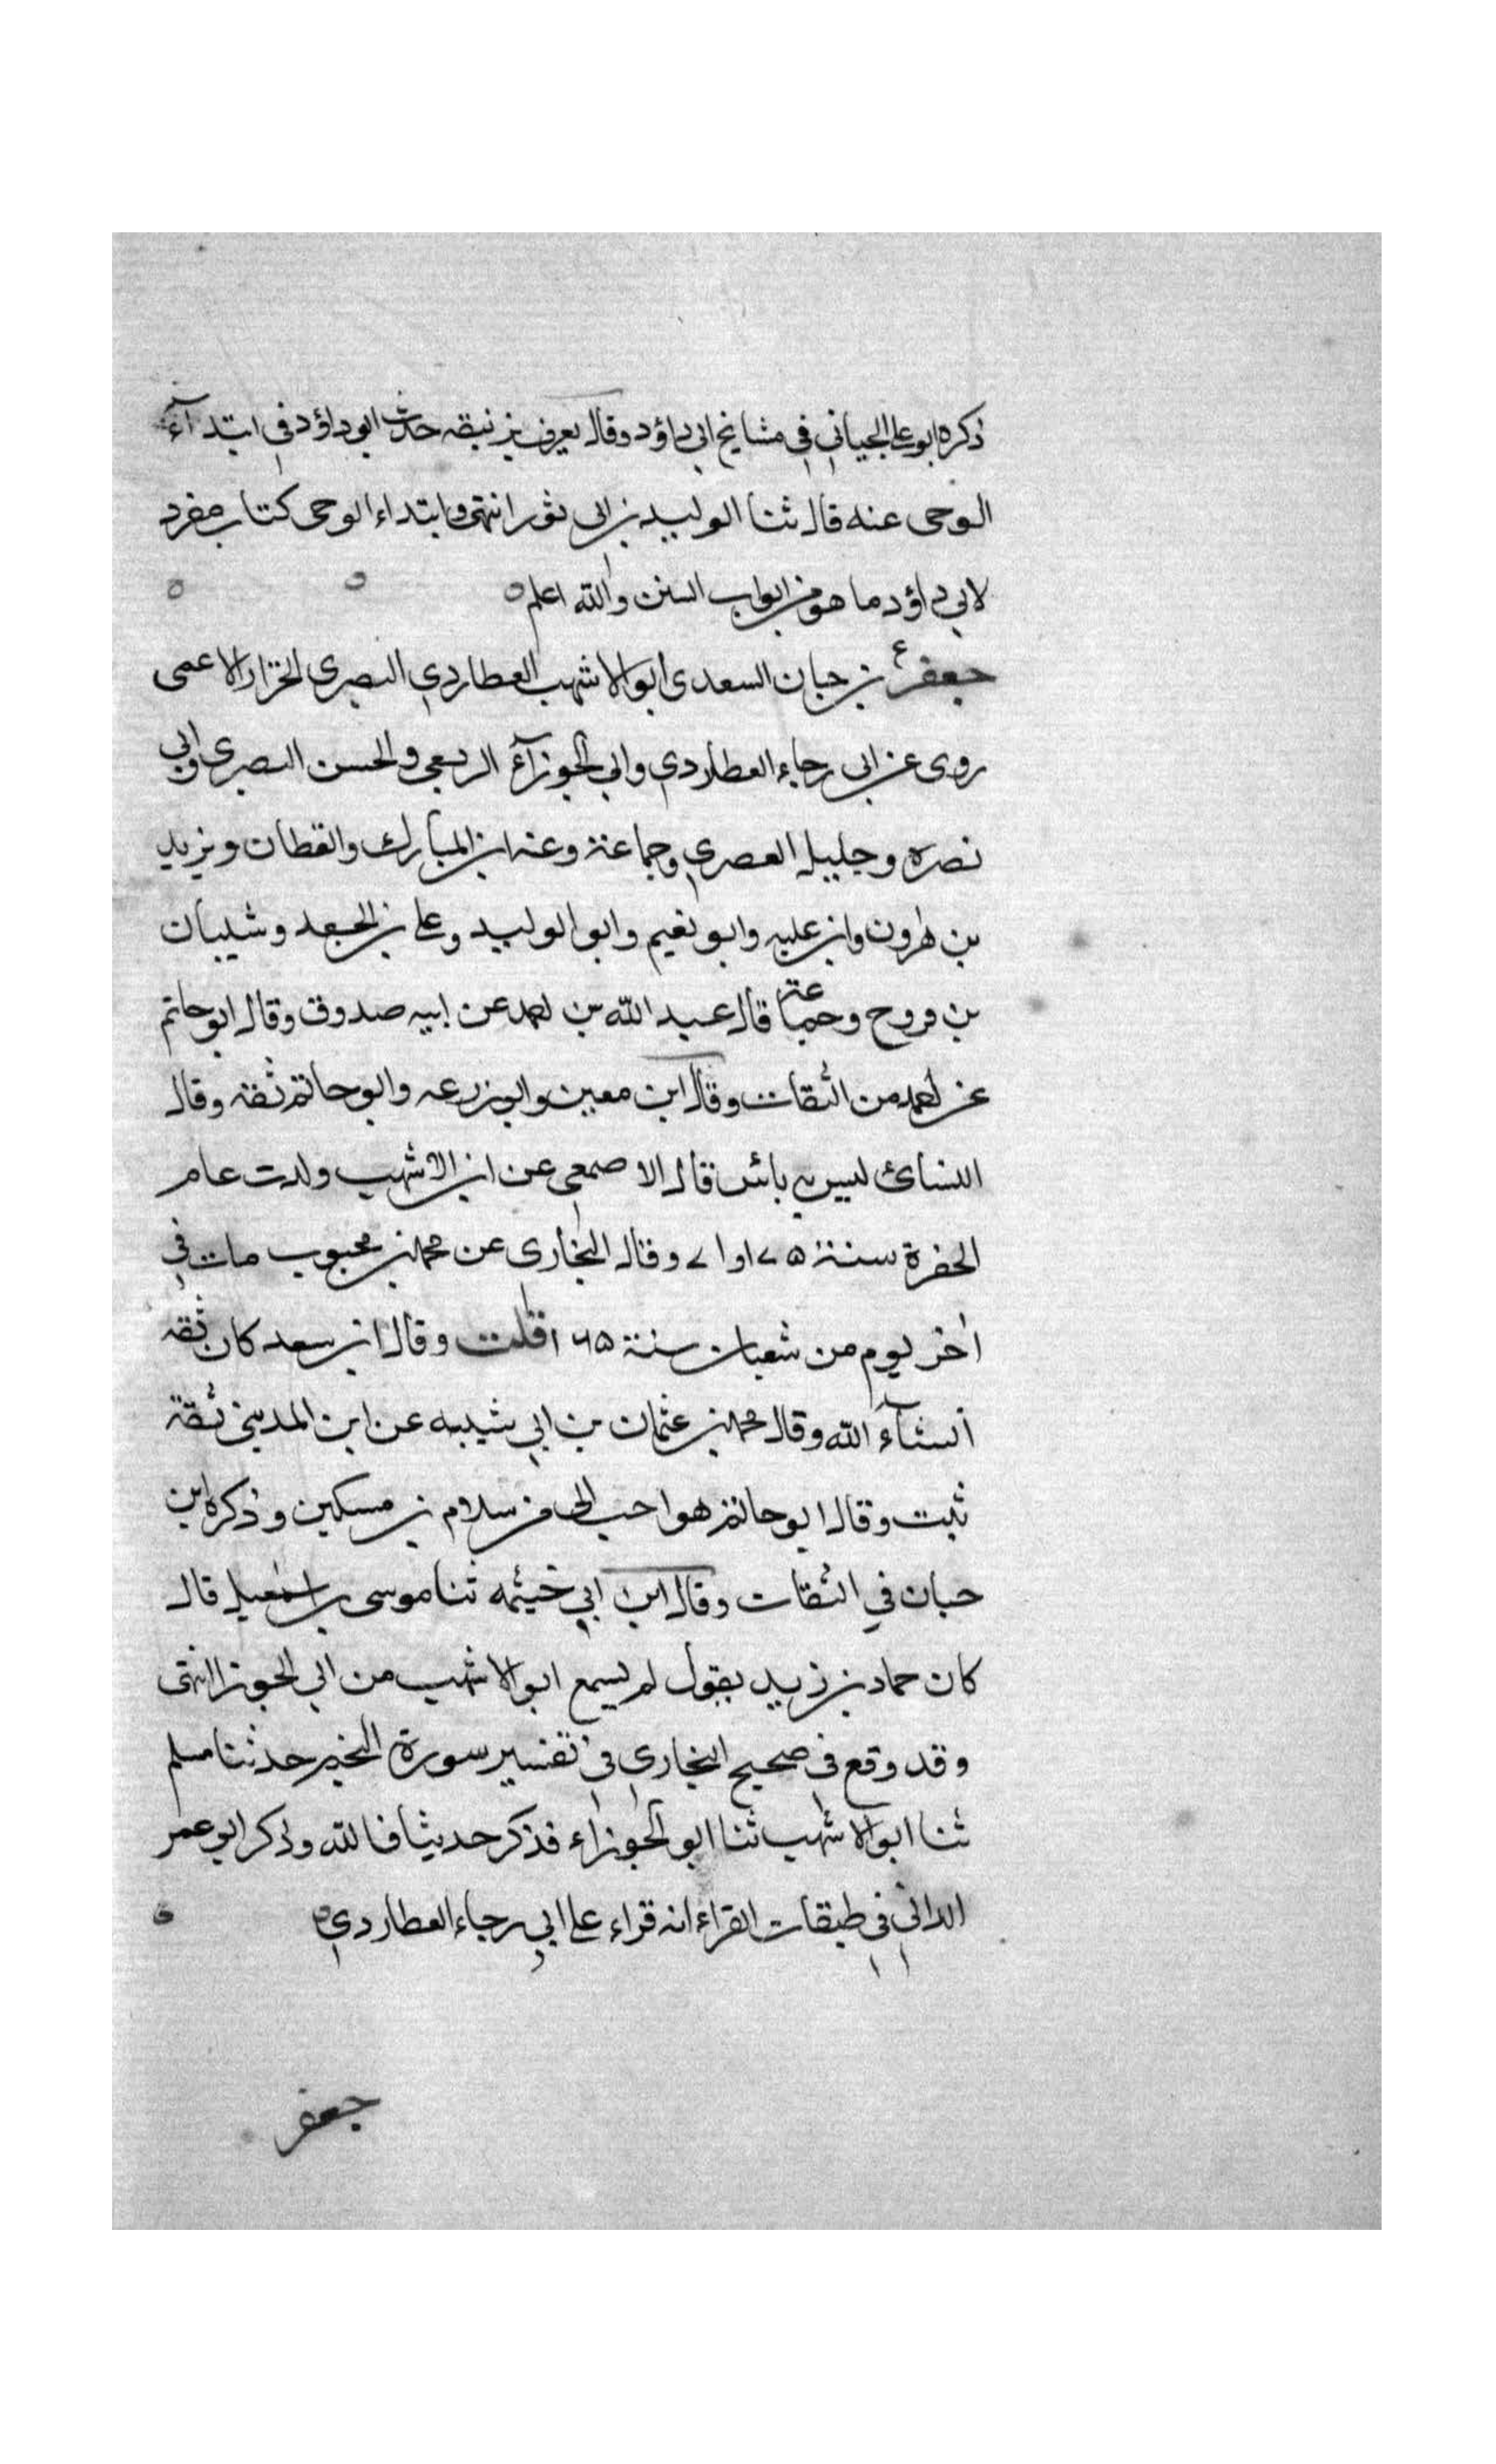 ذكره ابو علي الجياني في مشايخ ابي داؤد وقال يعرف بزنبقه حدث ابو داؤد في ابتدآء
الوحي عنه قال ثنا الوليد بن ابي ثور انتهى وابتداء الوحى كتاب مفرد
لابي داؤد ما هو من ابواب السنن والله اعلم ه
جعفر ع بن حبان السعدى ابو الاشهب العطاردي البصرى الخزاز الاعمى
روى عن ابى رجاء العطاردي وابي الجوزآء الربعي والحسن البصرى وابي
نصره وخليد العصري وجماعة وعنه ابن المبارك والقطان ويزيد
بن هرون وابن عليه وابو نعيم وابو الوليد وعلي بن الجعد وشيبان
بن فروخ وجماعة قال عبد الله بن احمد عن ابيه صدوق وقال ابو حاتم
عن احمد من الثقات وقال ابن معين وابو زرعه وابو حاتم ثقه وقال
النسائ ليس به بائس قال الاصمعي عن ابى الاشهب ولدت عام
الحفرة سنة ٧٥ او ٧١ وقال البخارى عن محمد بن محبوب مات في
اخر يوم من شعبان سنة ١٦٥ قلت وقال ابن سعد كان ثقه
انشآء الله وقال محمد بن عثمان بن ابي شيبه عن ابن المديني ثقة
ثبت وقال ابو حاتم هو احب الى من سلام بن مسكين وذكره ابن
حبان في الثقات وقال ابن ابي خيثمه ثنا موسى بن اسمعيل قال
كان حماد بن زيد يقول لم يسمع ابو الاشهب من ابي الجوزا انتهى
وقد وقع في صحيح البخاري في تفسير سورة النجم حدثنا مسلم
ثنا ابو الاشهب ثنا ابو الجوزاء فذكر حديثا فالله وذكر ابو عمر
الداني في طبقات القراء انه قراء على ابي رجاء العطاردي ه
جعفر